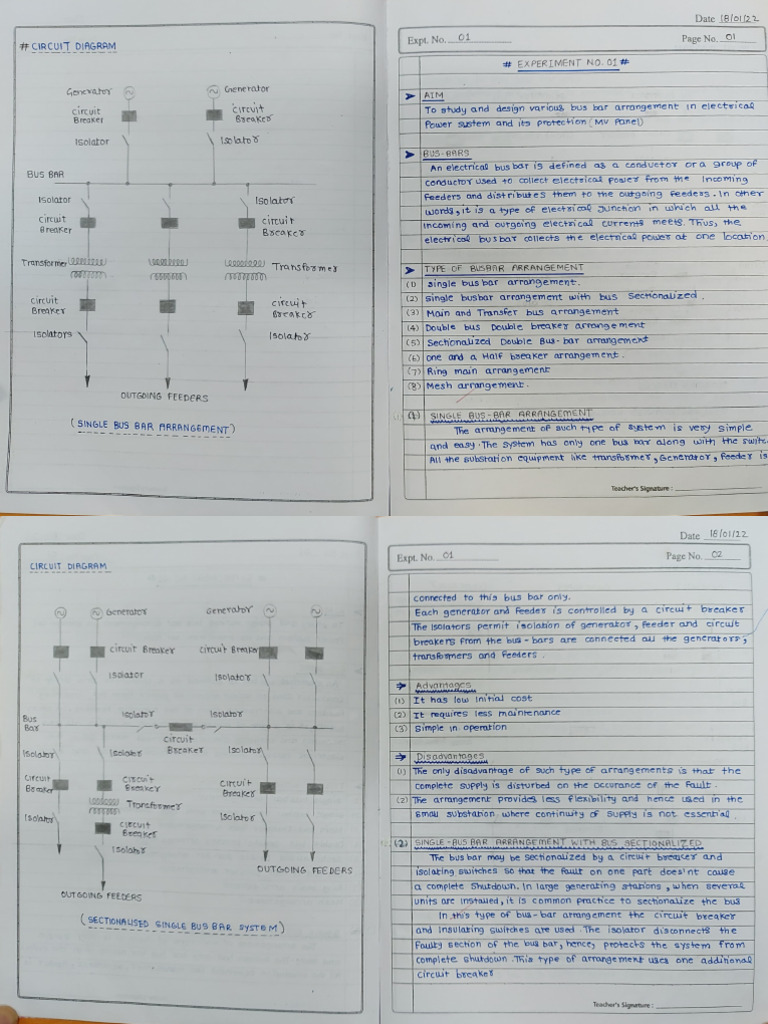 # CIRCUIT DIAGRAM
Generator
Generator
Circuit Breaker
Circuit Breaker
Isolator
Isolator
BUS BAR
Isolator
Isolator
Circuit Breaker
Circuit Breaker
Transformer
Transformer
Circuit Breaker
Circuit Breaker
Isolators
Isolator
OUTGOING FEEDERS
(SINGLE BUS BAR ARRANGEMENT)
Date 18/01/22
Expt. No. 01
Page No. 01
# EXPERIMENT NO. 01 #
➤ AIM
To study and design various bus bar arrangement in electrical
Power system and its protection (MV Panel)
➤ BUS-BARS
An electrical bus bar is defined as a conductor or a group of
conductor used to collect electrical power from the Incoming
feeders and distributes them to the outgoing feeders. In other
words, it is a type of electrical Junction in which all the
incoming and outgoing electrical currents meets. Thus, the
electrical bus bar collects the electrical power at one location
➤ TYPE OF BUSBAR ARRANGEMENT
(1) Single bus bar arrangement.
(2) Single busbar arrangement with bus Sectionalized.
(3) Main and Transfer bus arrangement
(4) Double bus Double breaker arrangement
(5) Sectionalized Double Bus-bar arrangement
(6) One and a Half breaker arrangement.
(7) Ring main arrangement
(8) Mesh arrangement.
(1) SINGLE BUS-BAR ARRANGEMENT
The arrangement of such type of system is very simple
and easy. The system has only one bus bar along with the
All the substation equipment like transformer, Generator, feeder is
Teacher's Signature :
CIRCUIT DIAGRAM
Generator
Generator
Circuit Breaker
Circuit Breaker
Isolator
Isolator
Bus Bar
Isolator
Isolator
Circuit Breaker
Isolator
Isolator
Isolator
Circuit Breaker
Circuit Breaker
Circuit Breaker
Transformer
Isolator
Circuit Breaker
Isolator
Isolator
OUTGOING FEEDERS
OUTGOING FEEDERS
(SECTIONALISED SINGLE BUS BAR SYSTEM)
Date 18/01/22
Expt. No. 01
Page No. 02
connected to this bus bar only.
Each generator and feeder is controlled by a circuit breaker
The Isolators permit isolation of generator, feeder and circuit
breakers from the bus-bars are connected all the generators,
transformers and feeders.
➔ Advantages
(1) It has low initial cost
(2) It requires less maintenance
(3) Simple in operation
➔ Disadvantages
(1) The only disadvantage of such type of arrangements is that the
complete supply is disturbed on the occurance of the fault.
(2) The arrangement provides less flexibility and hence used in the
small substation where continuity of supply is not essential.
(2) SINGLE-BUS BAR ARRANGEMENT WITH BUS SECTIONALIZED
The bus bar may be sectionalized by a circuit breaker and
isolating switches so that the fault on one part does'nt cause
a complete Shutdown. In large generating stations, when several
units are installed, it is common practice to sectionalize the bus
In this type of bus-bar arrangement the circuit breaker
and Insulating switches are used. The isolator disconnects the
Faulty section of the bus bar, hence, protects the system from
complete shutdown. This type of arrangement uses one additional
circuit breaker
Teacher's Signature :